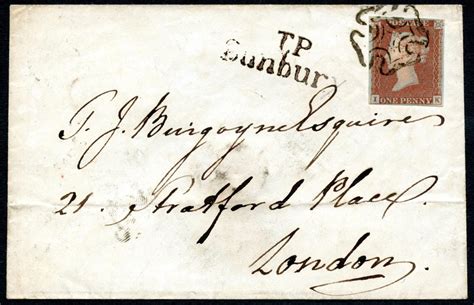 T.P
Sunbury
ONE PENNY
I K
T. J. Burgoyne Esquire
21. Stratford Place.
London.